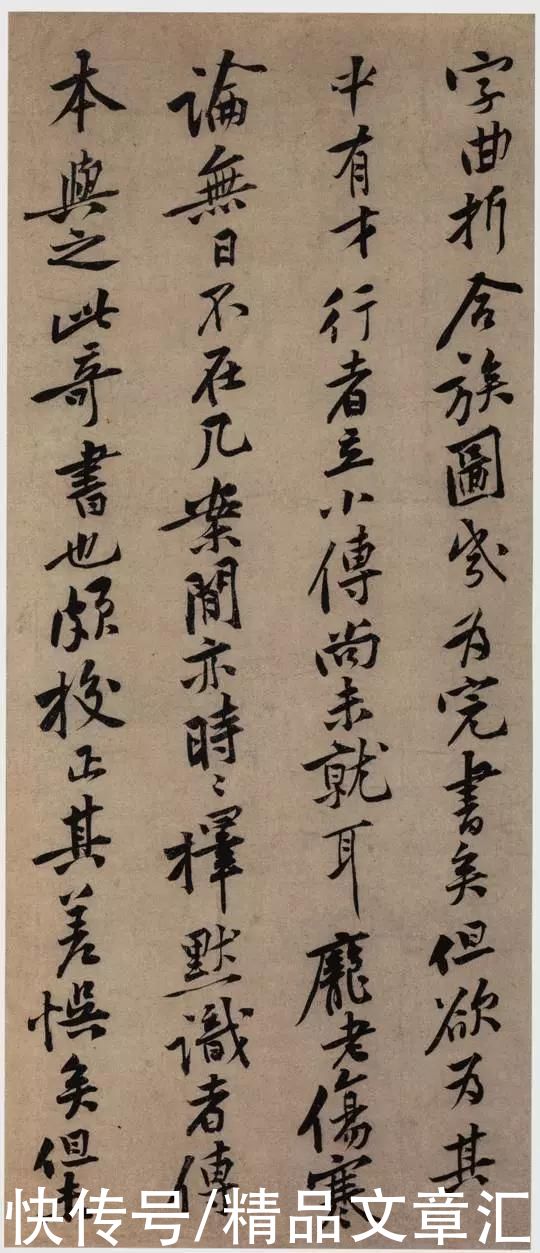 字曲折合族圖㡬為完書矣但欲為其
中有才行者立小傳尚未就耳龐老傷寒
論無日不在几案間亦時〻擇默識者傳
本與之此奇書也頗校正其差悞矣但未
快传号/精品文章汇